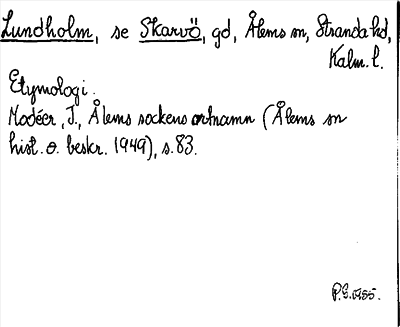 Lundholm, se Skarvö, gd, Ålems sn, Stranda hd,
Kalm. l.
Etymologi.
Modéer, I., Ålems sockens ortnamn (Ålems sn
hist. o. beskr. 1949), s. 83.